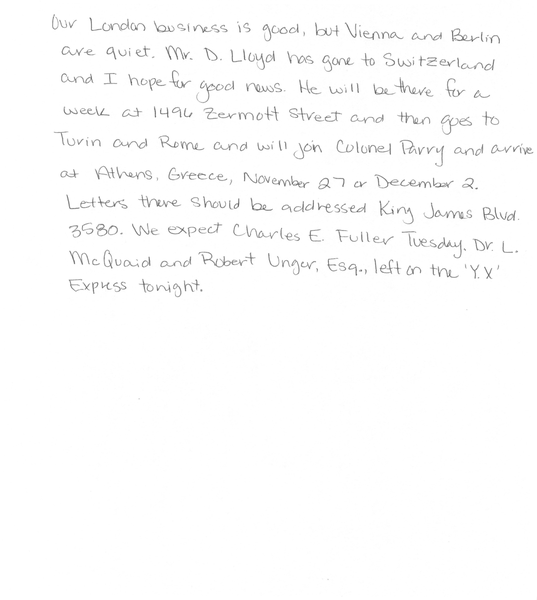 Our London business is good, but Vienna and Berlin
are quiet. Mr. D. Lloyd has gone to Switzerland
and I hope for good news. He will be there for a
week at 1496 Zermott Street and then goes to
Turin and Rome and will join Colonel Parry and arrive
at Athens, Greece, November 27 or December 2.
Letters there should be addressed King James Blvd.
3580. We expect Charles E. Fuller Tuesday. Dr. L.
McQuaid and Robert Unger, Esq., left on the 'Y.X'
Express tonight.